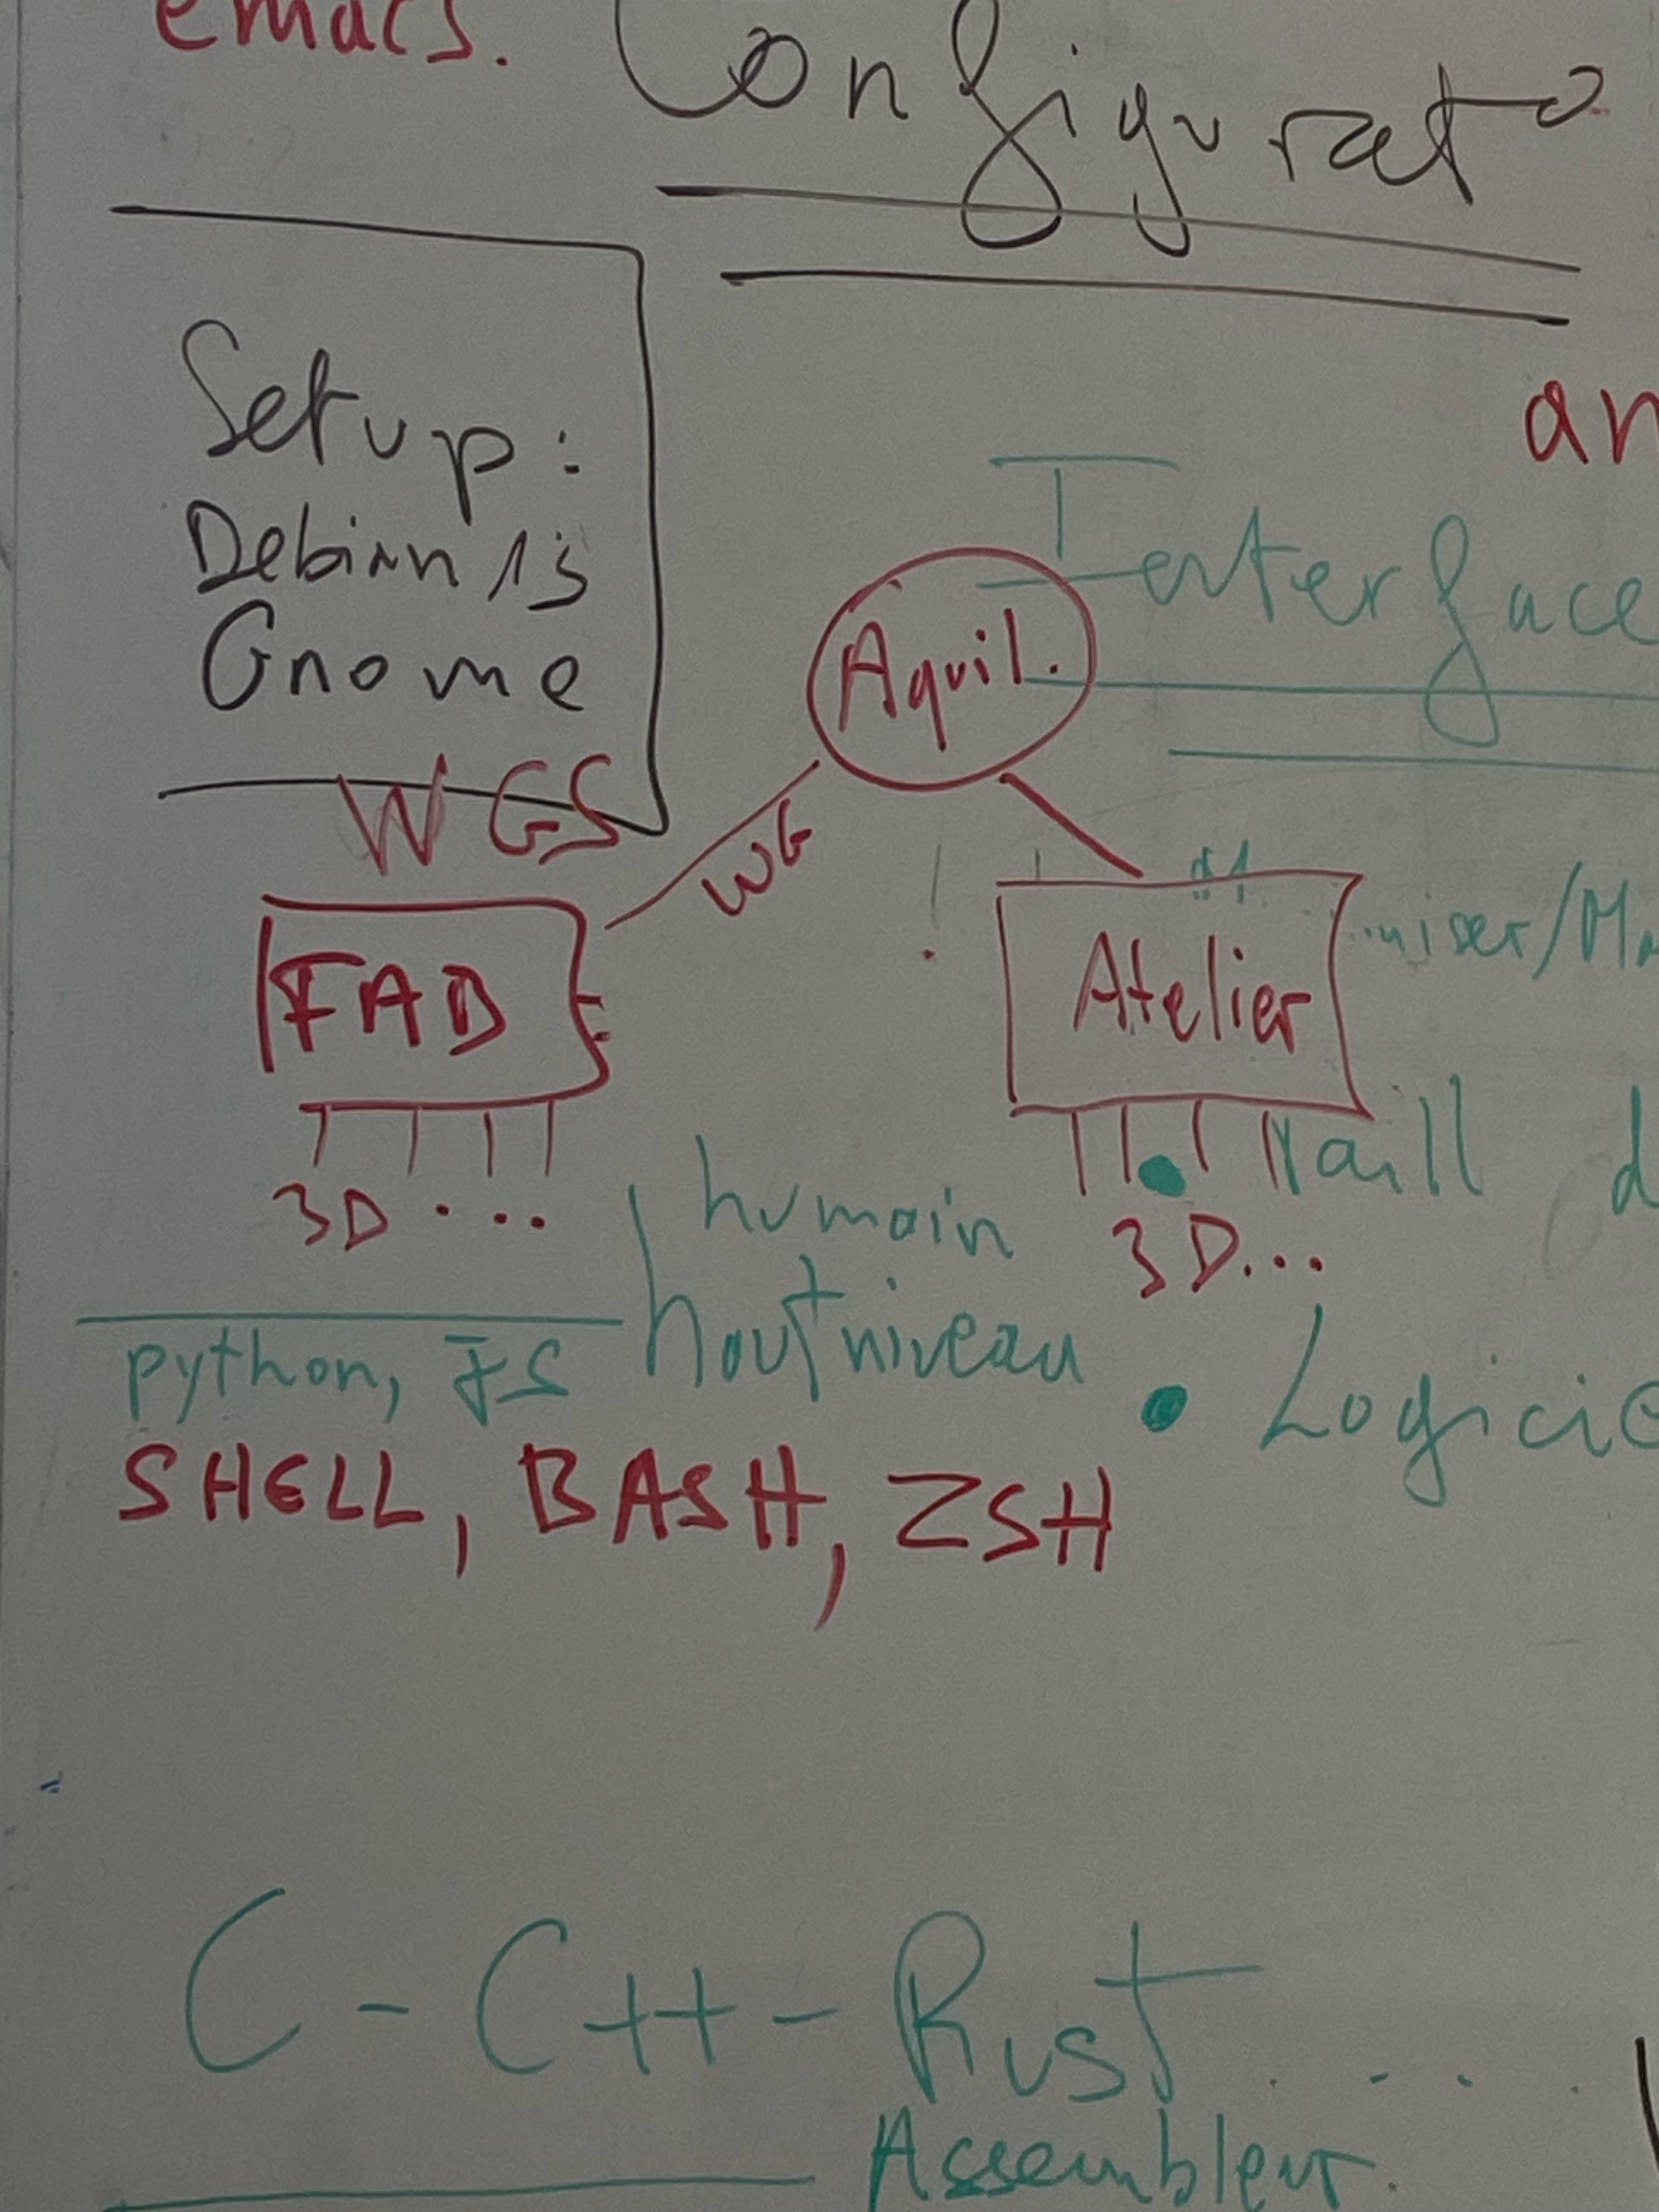 emacs.
Configurat°
Setup:
Debian 13
Gnome
an
Interface
Aquil.
WGS
WG
FAB
Atelier
niser/Ma
3D ...
humain
aill d
3D...
haut niveau
python, JS
Logicie
SHELL, BASH, ZSH
C - C++ - Rust ....
Assembleur.